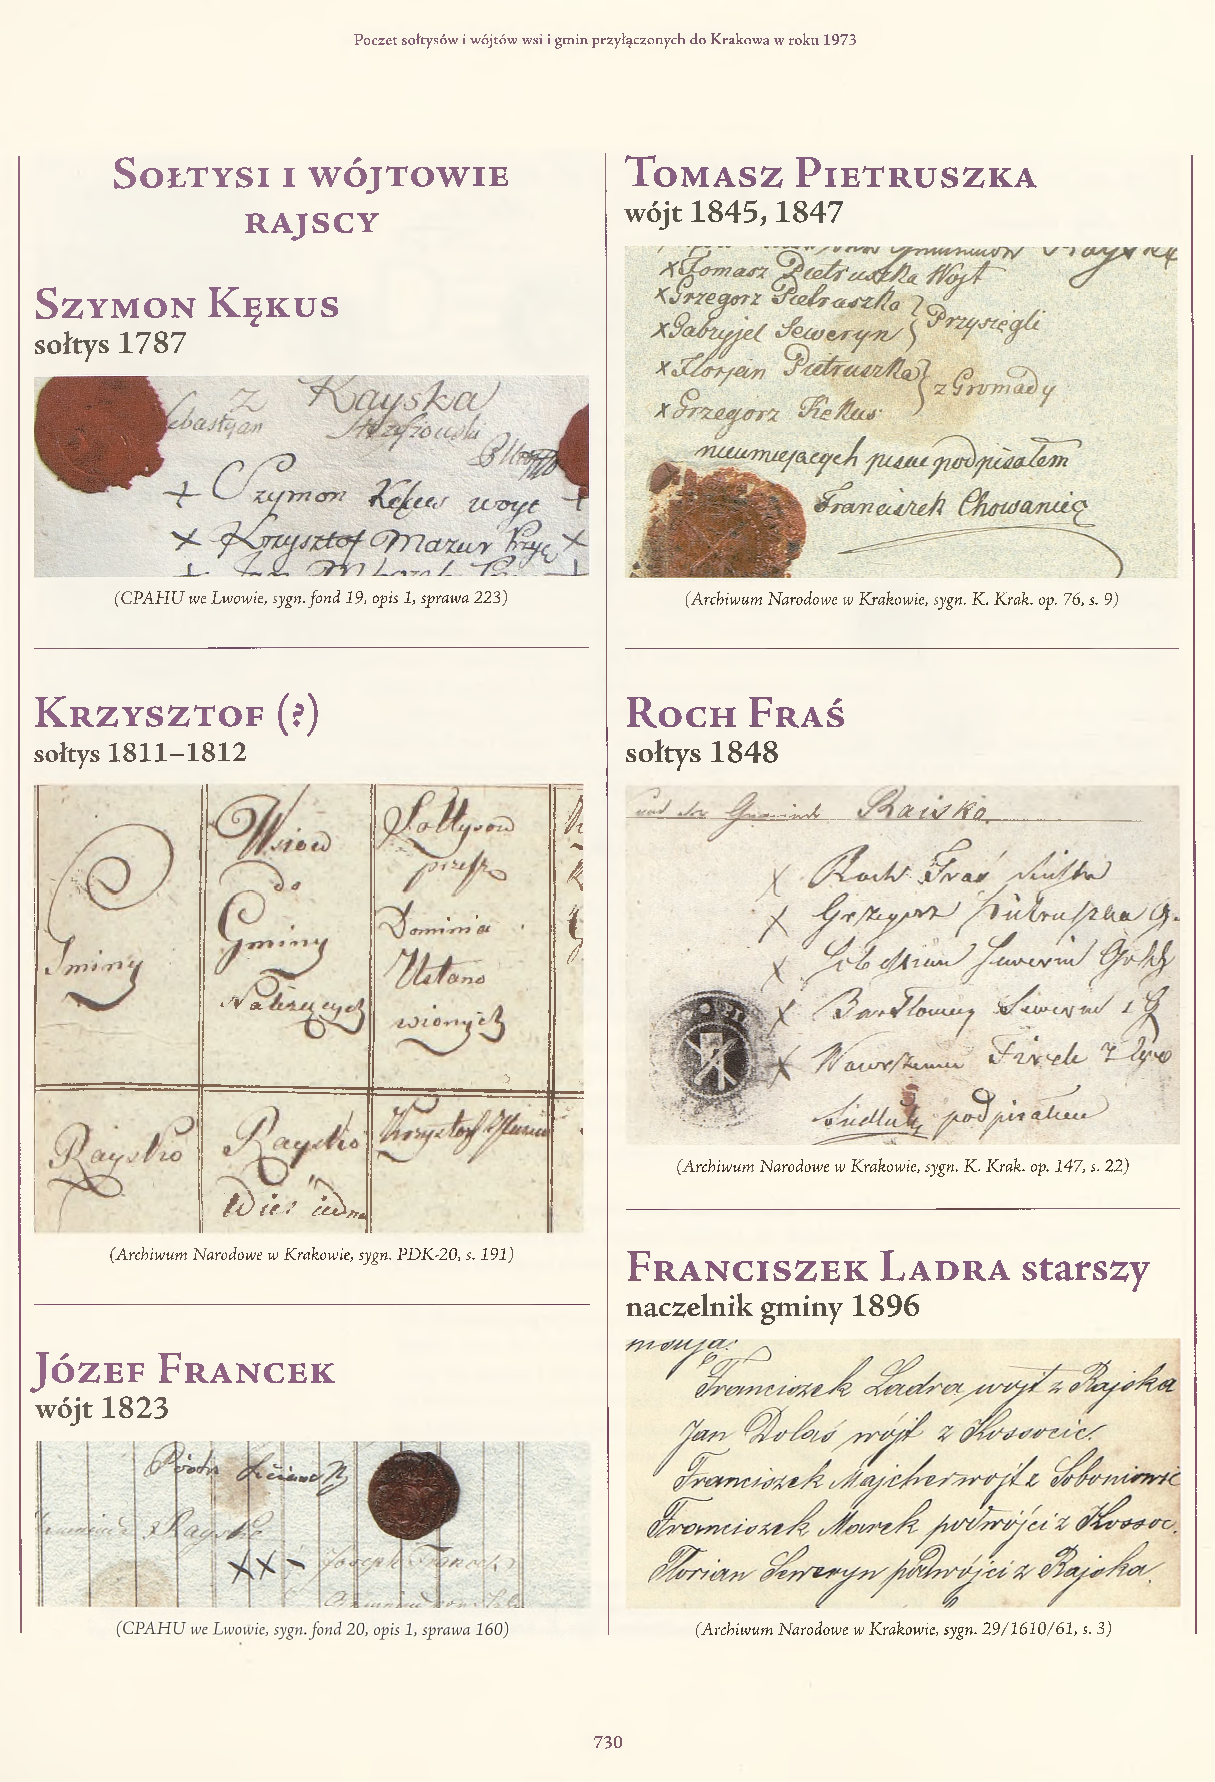 Poczet sołtysów i wójtów wsi i gmin przyłączonych do Krakowa w roku 1973
Sołtysi i wójtowie
rajscy
Szymon Kękus
sołtys 1787
z Rayska
Sebastyan
+ Szymon Kękus woyt +
x Krzysztof Mazur Przys x
(CPAHU we Lwowie, sygn. fond 19, opis 1, sprawa 223)
Krzysztof (?)
sołtys 1811–1812
Gminy
Wsiów
do
Gminy
Należących
Sołtysow
przez
Dominia
Ustano
wionych
Raysko
Raysko
Wieś iedna
Krzysztof
(Archiwum Narodowe w Krakowie, sygn. PDK-20, s. 191)
Józef Francek
wójt 1823
z Raysko
Joseph Francek
(CPAHU we Lwowie, sygn. fond 20, opis 1, sprawa 160)
Tomasz Pietruszka
wójt 1845, 1847
x Tomasz Pietruszka Wojt
x Grzegorz Pietruszka
x Gabryjel Seweryn } Przysięgli
x Florjan Pietruszka
x Grzegorz Kekus } z Gromady
nieumiejących pisać podpisałem
Franciszek Chowaniec
(Archiwum Narodowe w Krakowie, sygn. K. Krak. op. 76, s. 9)
Roch Fraś
sołtys 1848
und der Gemeinde Raisko
x Roch Fraś
x Grzegorz Pietruszka G.
x Sebastian Seweryn
x Bartłomiej Seweryn
x Wawrzeniec
podpisałem
(Archiwum Narodowe w Krakowie, sygn. K. Krak. op. 147, s. 22)
Franciszek Ladra starszy
naczelnik gminy 1896
Franciszek Ladra wojt z Rajska
Jan Dolaś wójt z Kossocic.
Franciszek Majcher wojt z Soboniowic
Franciszek Marek podwójci z Kossoc.
Florian Seweryn podwójci z Rajska.
(Archiwum Narodowe w Krakowie, sygn. 29/1610/61, s. 3)
730